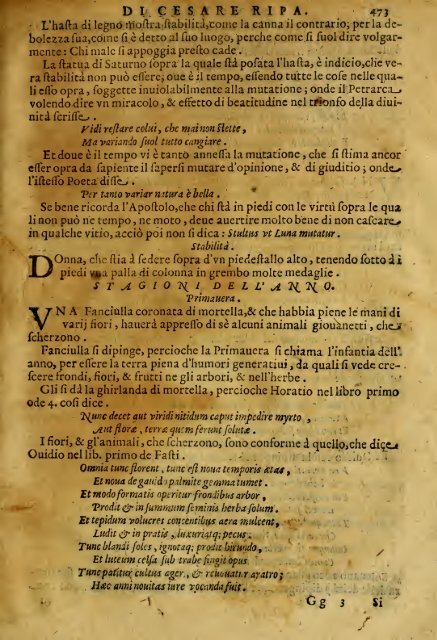 DI CESARE RIPA. 473
L'hasta di legno mostra stabilità, come la canna il contrario, per la de-
bolezza sua, come si è detto al suo luogo, perche come si suol dire volgar-
mente: Chi male si appoggia presto cade.
La statua di Saturno sopra la quale stà posata l'hasta, è indicio, che ve-
ra stabilità non può essere, oue è il tempo, essendo tutte le cose nelle qua-
li esso opra, soggette inuiolabilmente alla mutatione; onde il Petrarca
volendo dire vn miracolo, & effetto di beatitudine nel trionfo della diui-
nità scrisse.
Vidi restare colui, che mai non stette,
Ma variando suol tutto cangiare.
Et doue è il tempo vi è tanto annessa la mutatione, che si stima ancor
esser opra da sapiente il sapersi mutare d'opinione, & di giuditio; onde
l'istesso Poeta disse.
Per tanto variar natura è bella.
Se bene ricorda l'Apostolo, che chi stà in piedi con le virtù sopra le qua
li non può ne tempo, ne moto, deue auertire molto bene di non cascare
in qualche vitio, acciò poi non si dica: Stultus vt Luna mutatur.
Stabilità.
Donna, che stia à sedere sopra d'vn piedestallo alto, tenendo sotto à i
piedi vna palla di colonna in grembo molte medaglie.
STAGIONI DELL'ANNO.
Primauera.
VNA Fanciulla coronata di mortella, & che habbia piene le mani di
varij fiori, hauerà appresso di sè alcuni animali giouanetti, che
scherzono.
Fanciulla si dipinge, percioche la Primauera si chiama l'infantia dell'
anno, per essere la terra piena d'humori generatiui, da quali si vede cre-
scere frondi, fiori, & frutti ne gli arbori, & nell'herbe.
Gli si dà la ghirlanda di mortella, percioche Horatio nel libro primo
ode 4. cosi dice.
Nunc decet aut viridi nitidum caput impedire myrto,
Aut floræ, terræ quem ferunt solutæ.
I fiori, & gl'animali, che scherzono, sono conforme à quello, che dice
Ouidio nel lib. primo de Fasti.
Omnia tunc florent, tunc est noua temporis ætas,
Et noua de gauido palmite gemma tumet.
Et modo formatis operitur frondibus arbor,
Prodit & in summum seminis herba solum.
Et tepidum volucres concentibus aera mulcent,
Ludit & in pratis, luxuriatq; pecus.
Tunc blandi soles, ignotaq; prodit hirundo,
Et luteum celsa sub trabe fingit opus
Tunc patitur cultus ager, & reuouatur aratro;
Hæc anni nouitas iure vocanda fuit.
Gg 3 Si